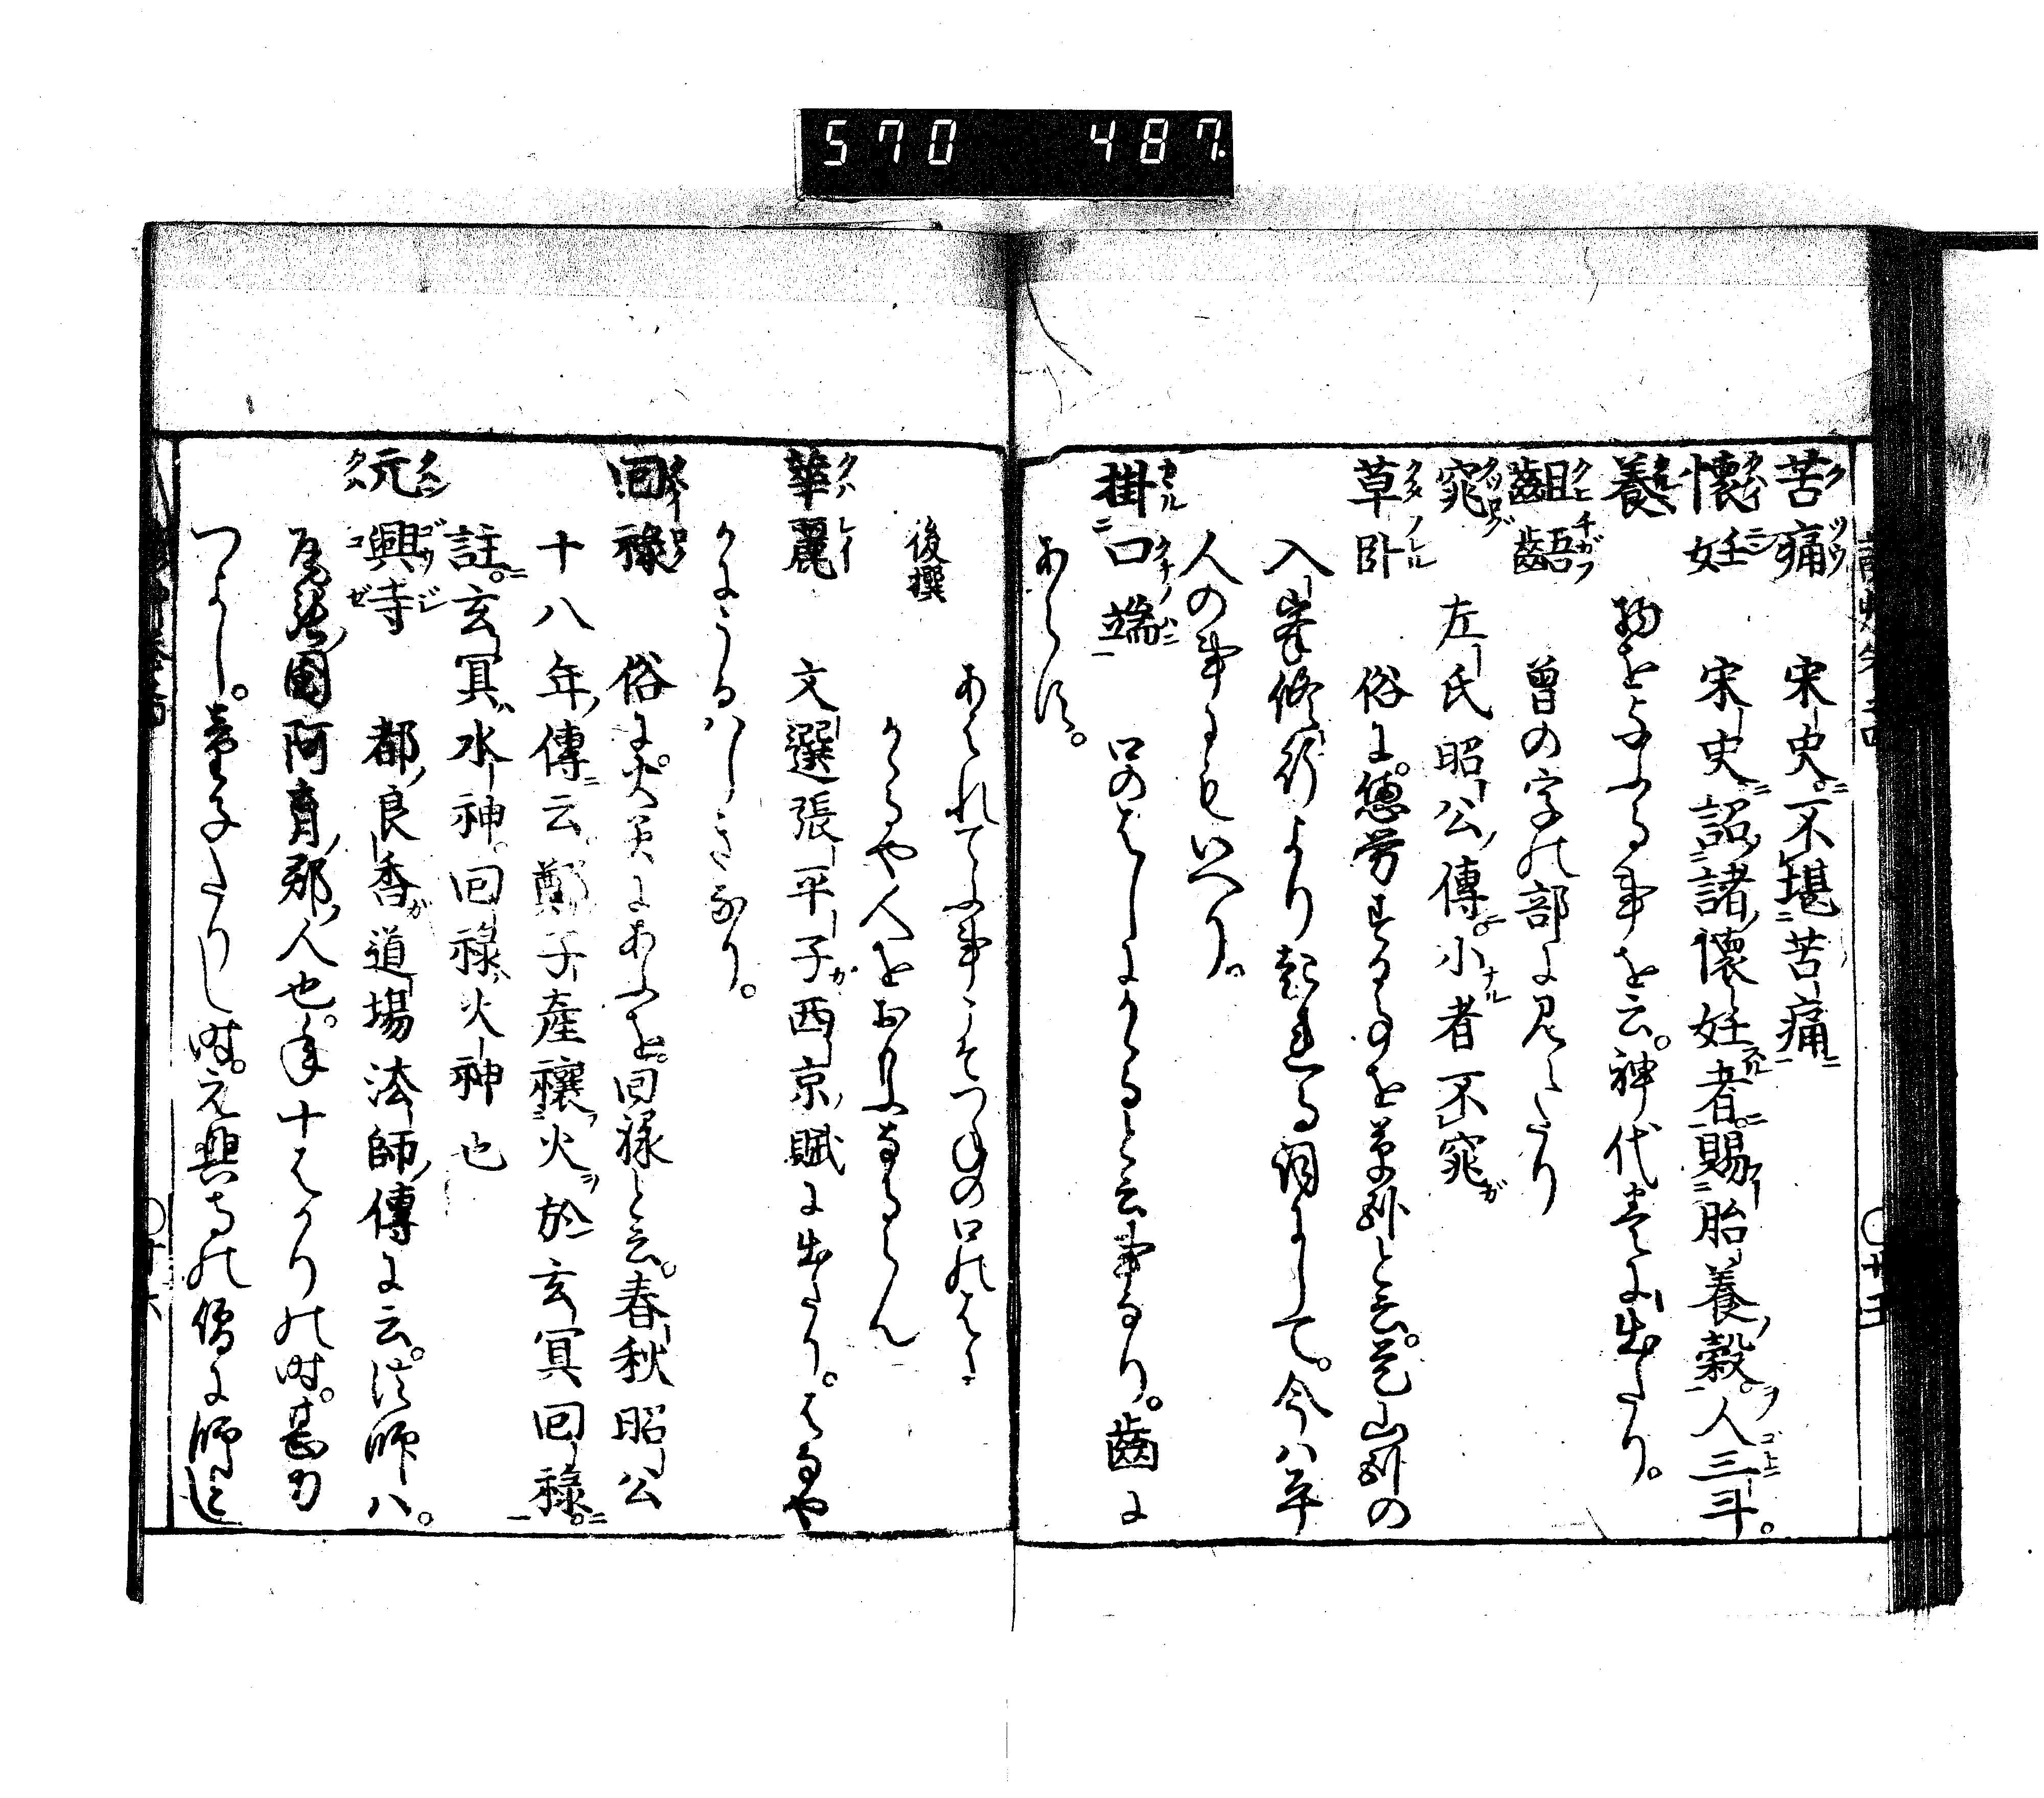 570 487.
苦痛 宋史。不堪苦痛
懐妊 宋史詔諸懐妊者。賜胎養穀。人三斗。
養 物をあたふる事を云。神代巻に出たり。
齟齬 曽の字の部に見へたり
窕 左氏昭公傳。小者不窕
草臥 俗に。
入峯修行より起れる詞にして。今ハ平
人の事にもいへり。
掛口端 口のはしにかゝると云事なり。齒に
あらす。
後撰 あはれてふ事こそつねの口のはに
かゝるや人をおもふなるらん
華麗 文選張平子西京賦に出たり。はなや
かにうるハしきなり。
回禄 俗に。火災にあふを。回禄と云。春秋昭公
十八年傳云。鄭子産禳火於玄冥回禄。
註。玄冥水神。回禄火神也
元興寺 都良香道場法師傳に云。法師ハ。
尾張國阿育郡人也。年十はかりの時。甚力
つよし。童子たりし時。元興寺の僧に師